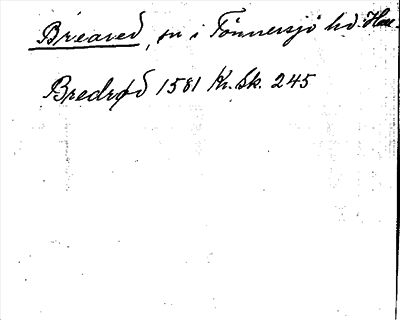 Breared, sn i Tönnersjö hd. Hall.
Bredrød 1581 Kr. Sk. 245